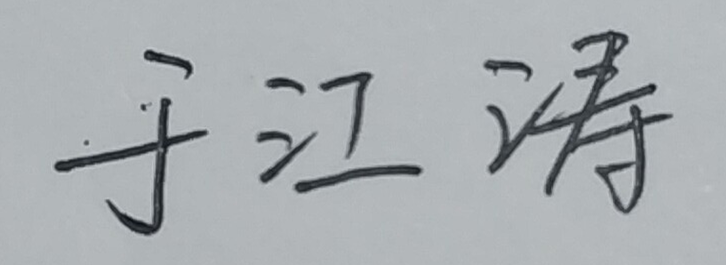 于江涛